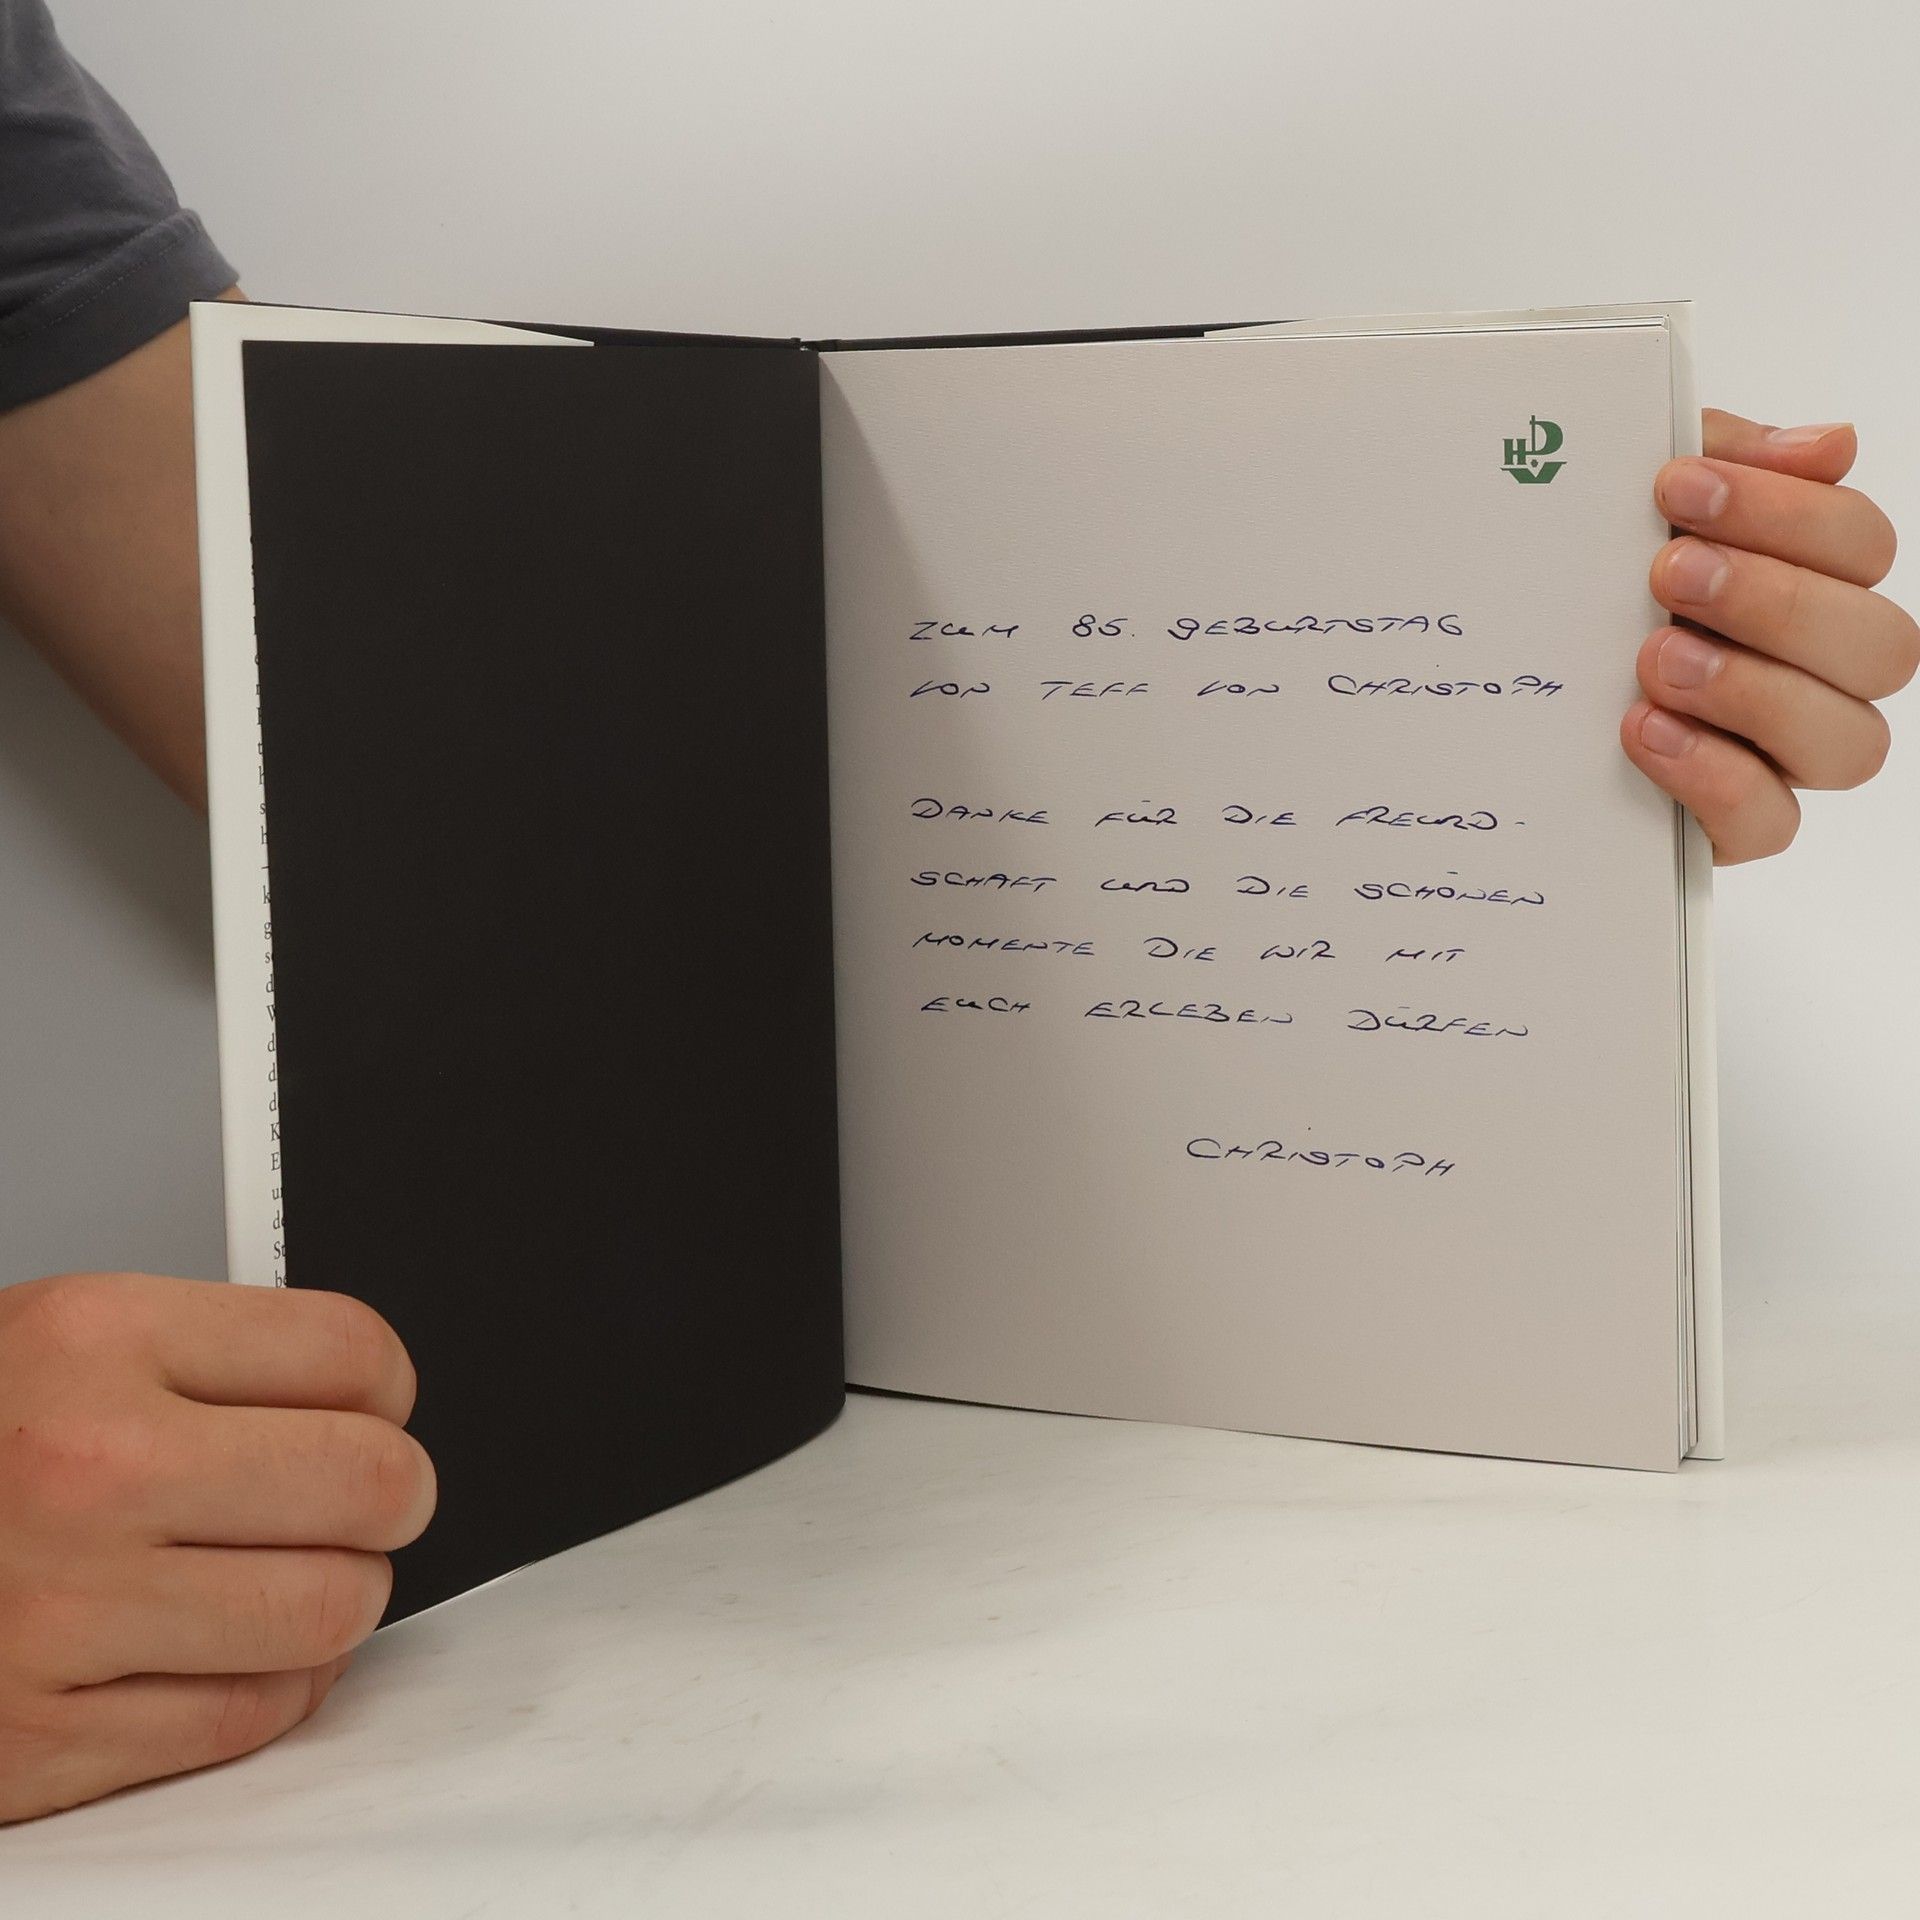 HDV
ZUM 85. GEBURTSTAG
VON TEFF VON CHRISTOPH
DANKE FÜR DIE FREUND-
SCHAFT UND DIE SCHÖNEN
MOMENTE DIE WIR MIT
EUCH ERLEBEN DÜRFEN
CHRISTOPH